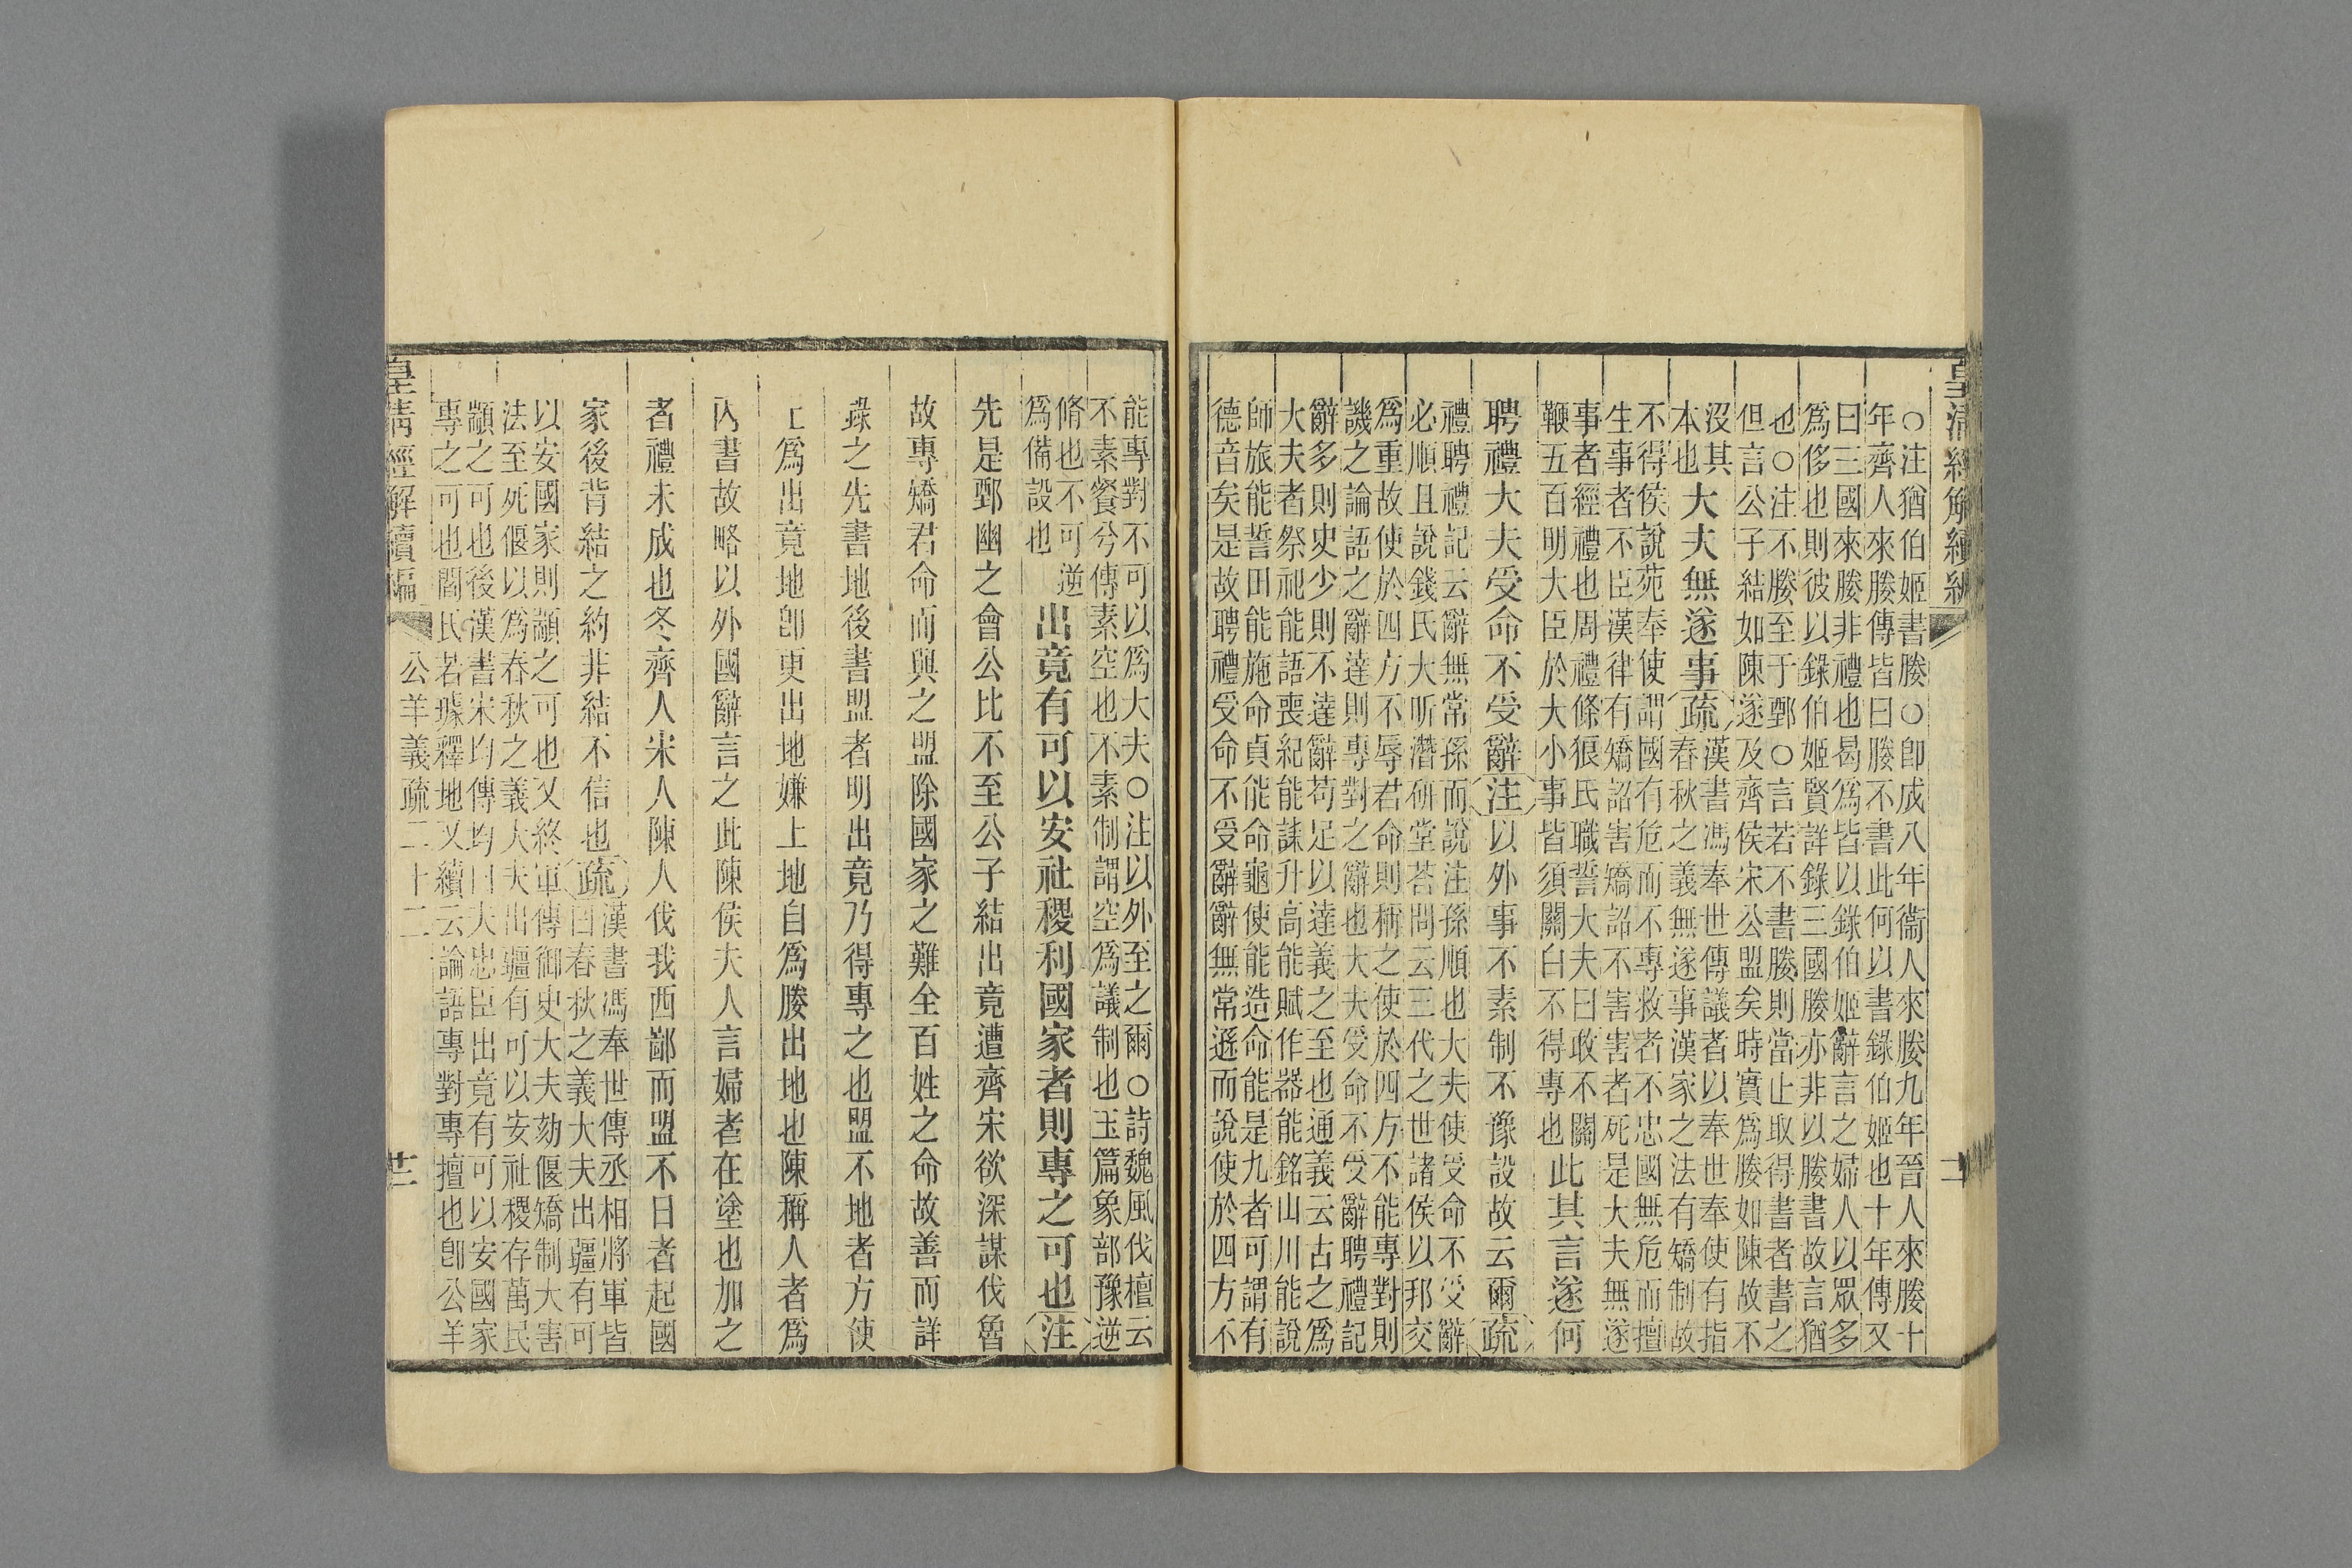 皇清經解續編
○注猶伯姬書媵○卽成八年衞人來媵九年晉人來媵十
年齊人來媵傳皆曰媵不書此何以書錄伯姬也十年傳又
曰三國來媵非禮也曷爲皆以錄伯姬辭言之婦人以眾多
爲侈也則彼以錄伯姬賢詳錄三國媵亦非以媵書故言猶
也○注不媵至于鄄○言若不書媵則當止取得書者書之
但言公子結如陳遂及齊侯宋公盟矣時實爲媵如陳故不
沒其
本也
大夫無遂事疏
漢書馮奉世傳議者以奉世奉使有指
春秋之義無遂事漢家之法有矯制故
不得侯說苑奉使謂國有危而不專救者不忠國無危而擅
生事者不臣漢律有矯詔害矯詔不害害者死是大夫無遂
事者經禮也周禮條狼氏職誓大夫曰敢不關
鞭五百明大臣於大小事皆須關白不得專也
此其言遂何
聘禮大夫受命不受辭注以外事不素制不豫設故云爾疏
禮聘禮記云辭無常孫而說注孫順也大夫使受命不受辭
必順且說錢氏大昕潛硏堂荅問云三代之世諸侯以邦交
爲重故使於四方不辱君命則稱之使於四方不能專對則
譏之論語之辭達則專對之辭也大夫受命不受辭聘禮記
辭多則史少則不達辭苟足以達義之至也通義云古之爲
大夫者祭祀能語喪紀能誄升高能賦作器能銘山川能說
師旅能誓田能施命貞能命龜使能造命能是九者可謂有
德音矣是故聘禮受命不受辭辭無常遜而說使於四方不
能專對不可以爲大夫○注以外至之爾○詩魏風伐檀云
不素餐兮傳素空也不素制謂空爲議制也玉篇象部豫逆
脩也不可逆
爲備設也
出竟有可以安社稷利國家者則專之可也注
先是鄄幽之會公比不至公子結出竟遭齊宋欲深謀伐魯
故專矯君命而與之盟除國家之難全百姓之命故善而詳
錄之先書地後書盟者明出竟乃得專之也盟不地者方使
上爲出竟地卽更出地嫌上地自爲媵出地也陳稱人者爲
內書故略以外國辭言之此陳侯夫人言婦者在塗也加之
者禮未成也冬齊人宋人陳人伐我西鄙而盟不日者起國
家後背結之約非結不信也疏
漢書馮奉世傳丞相將軍皆
曰春秋之義大夫出疆有可
以安國家則顓之可也又終軍傳御史大夫劾偃矯制大害
法至死偃以爲春秋之義大夫出疆有可以安社稷存萬民
顓之可也後漢書宋均傳均曰夫忠臣出竟有可以安國家
專之可也閻氏若璩釋地又續云論語專對專擅也卽公羊
皇清經解續編
公羊義疏二十二